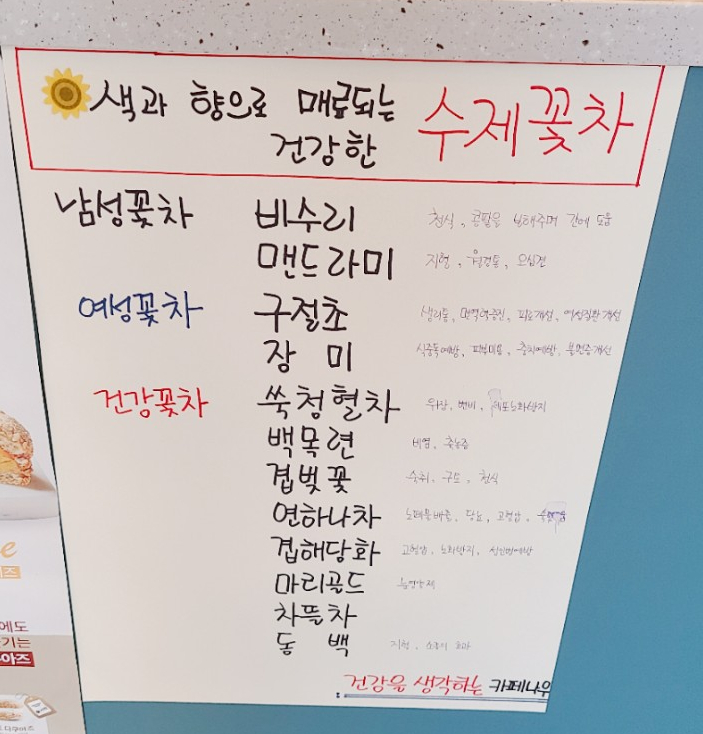 색과 향으로 매료되는
건강한 수제꽃차
남성꽃차 비수리 천식, 콩팥을 보해주며 간에 도움
맨드라미 지혈, 월경통,
여성꽃차 구절초 생리통, 면역력증진, 피로개선, 여성질환 개선
장 미 식중독예방, 피부미용, 충치예방, 불면증개선
건강꽃차 쑥청혈차 위장, 변비, 세포노화방지
백목련 비염, 축농증
겹벚꽃 숙취, 구토, 천식
연하나차 노폐물배출, 당뇨, 고혈압,
겹해당화 고혈압, 노화방지,
마리골드
차뜰차
동 백 지혈, 소염 효과
건강을 생각하는 카페나우
에도
기는
아즈
e